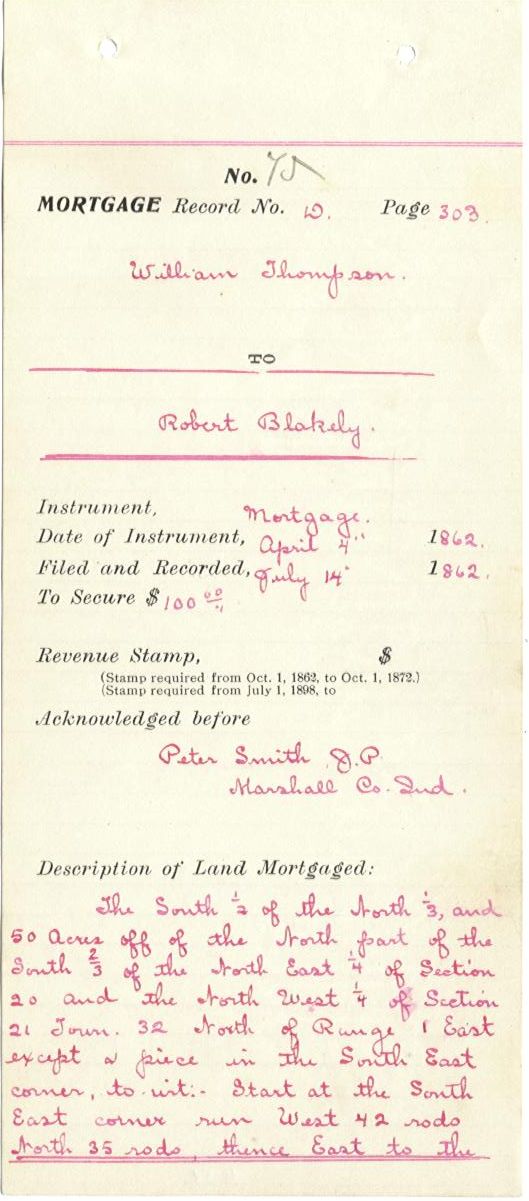 No. 75
MORTGAGE Record No. D. Page 303.
William Thompson.
TO
Robert Blakely.
Instrument, Mortgage.
Date of Instrument, April 4" 1862.
Filed and Recorded, July 14" 1862.
To Secure $100 00/..
Revenue Stamp, $
(Stamp required from Oct. 1, 1862, to Oct. 1, 1872.)
(Stamp required from July 1, 1898, to
Acknowledged before
Peter Smith J.P.
Marshall Co. Ind.
Description of Land Mortgaged:
The South 1/2 of the North 1/3, and
50 Acres off of the North part of the
South 2/3 of the North East 1/4 of Section
20 and the North West 1/4 of Section
21 Town. 32 North of Range 1 East
except a piece in the South East
corner, to-wit:- Start at the South
East corner run West 42 rods
North 35 rods, thence East to the